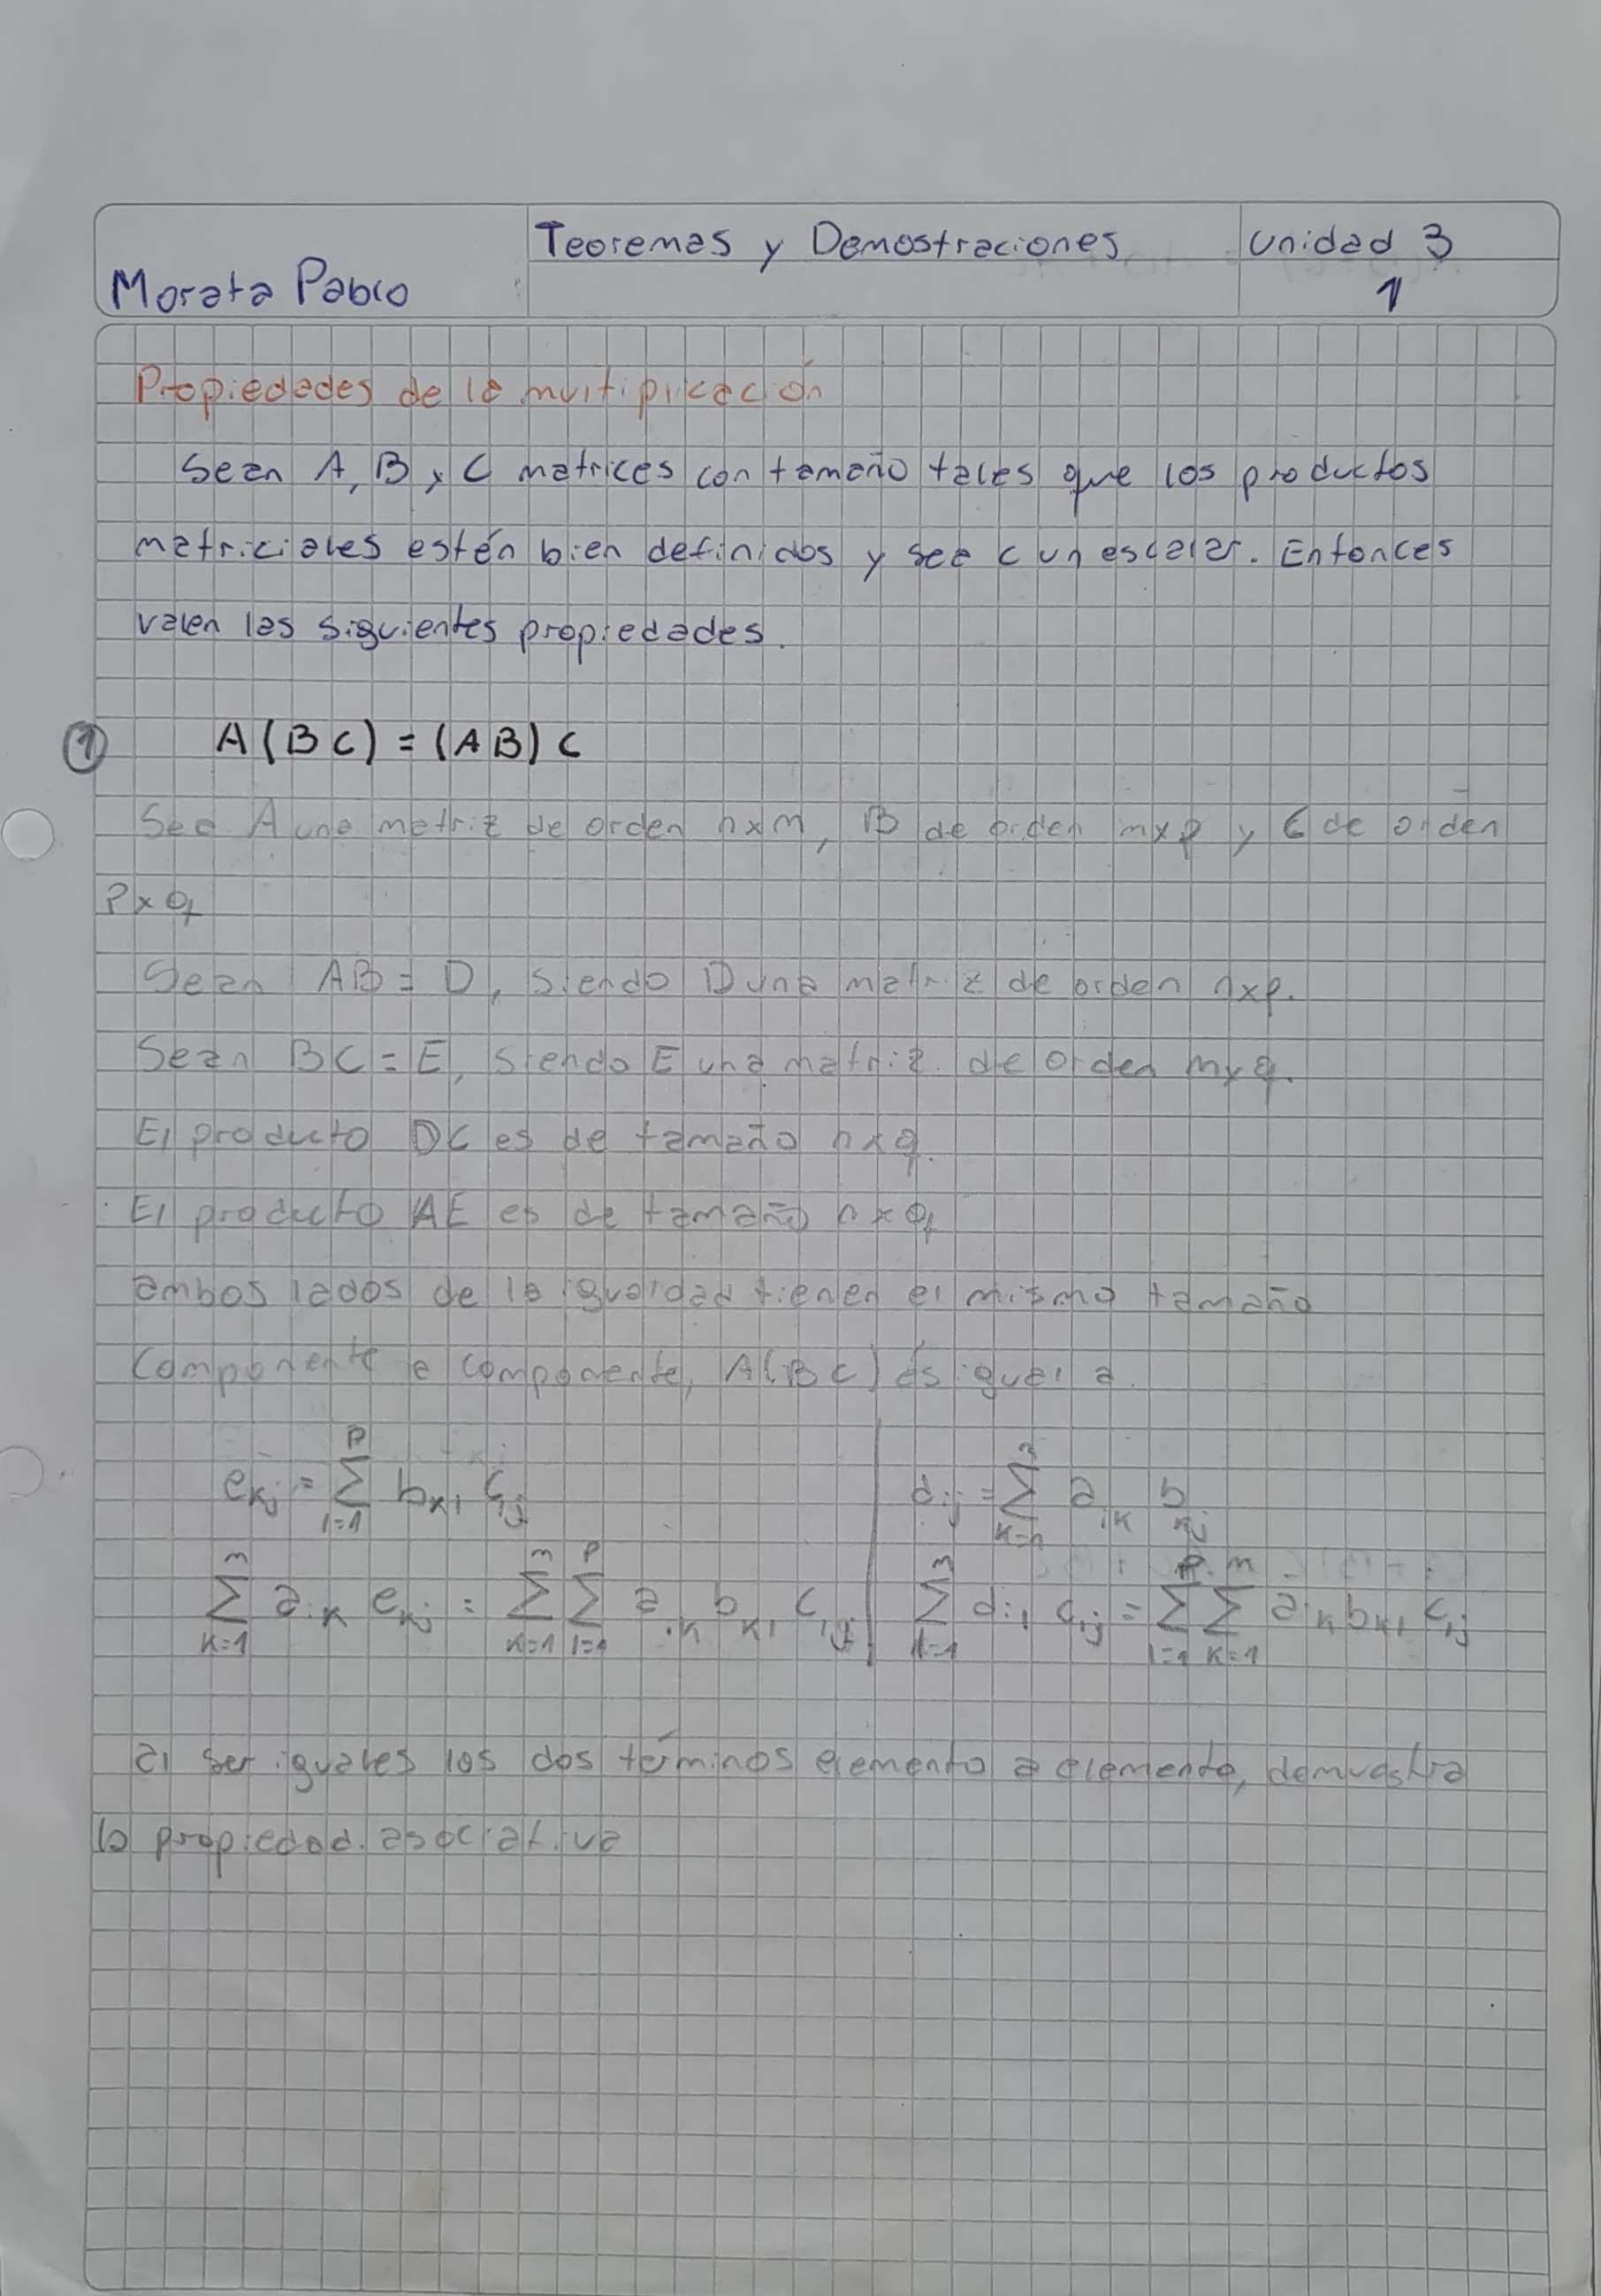 Teoremas y Demostraciones
Unidad 3
Morata Pablo
1
Propiedades de la multiplicación
Sean A, B y C matrices con tamaño tales que los productos
matriciales estén bien definidos y sea c un escalar. Entonces
valen las siguientes propiedades.
① A(BC) = (AB)C
Sea A una matriz de orden n×m, B de orden m×p y C de orden
P×q
Sean AB = D, siendo D una matriz de orden n×p.
Sean BC = E, siendo E una matriz de orden m×q.
El producto DC es de tamaño n×q.
El producto AE es de tamaño n×q
ambos lados de la igualdad tienen el mismo tamaño
Componente a componente, A(BC) es igual a.
e_{kj} = \sum_{l=1}^{p} b_{kl} c_{lj}
\sum_{k=1}^{m} a_{ik} e_{kj} = \sum_{k=1}^{m} \sum_{l=1}^{p} a_{ik} b_{kl} c_{lj}
d_{ij} = \sum a_{ik} b_{kj}
\sum d_{il} c_{lj} = \sum_{l=1}^{p} \sum_{k=1}^{m} a_{ik} b_{kl} c_{lj}
al ser iguales los dos términos elemento a elemento, demuestra
la propiedad asociativa